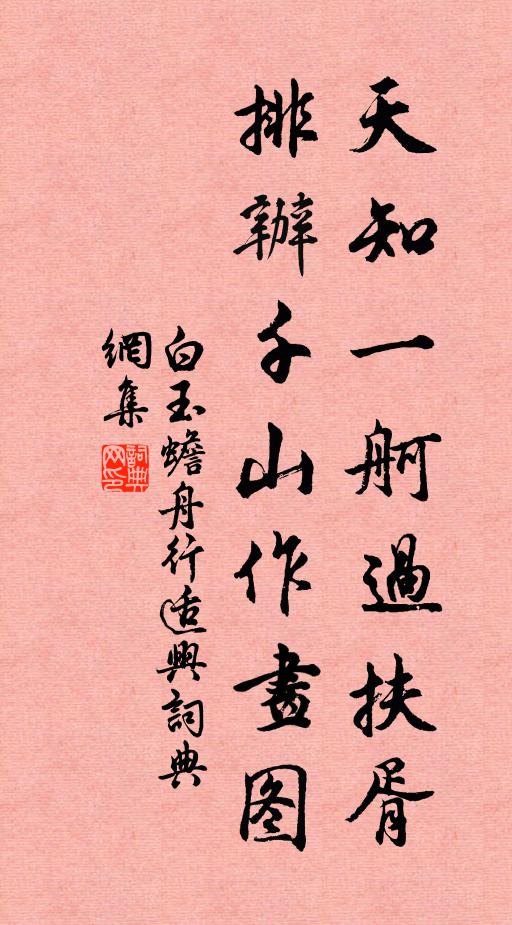 天知一舸過扶胥
排辦千山作畫图
白玉蟾舟行适興詞典
網集
詞典
网印